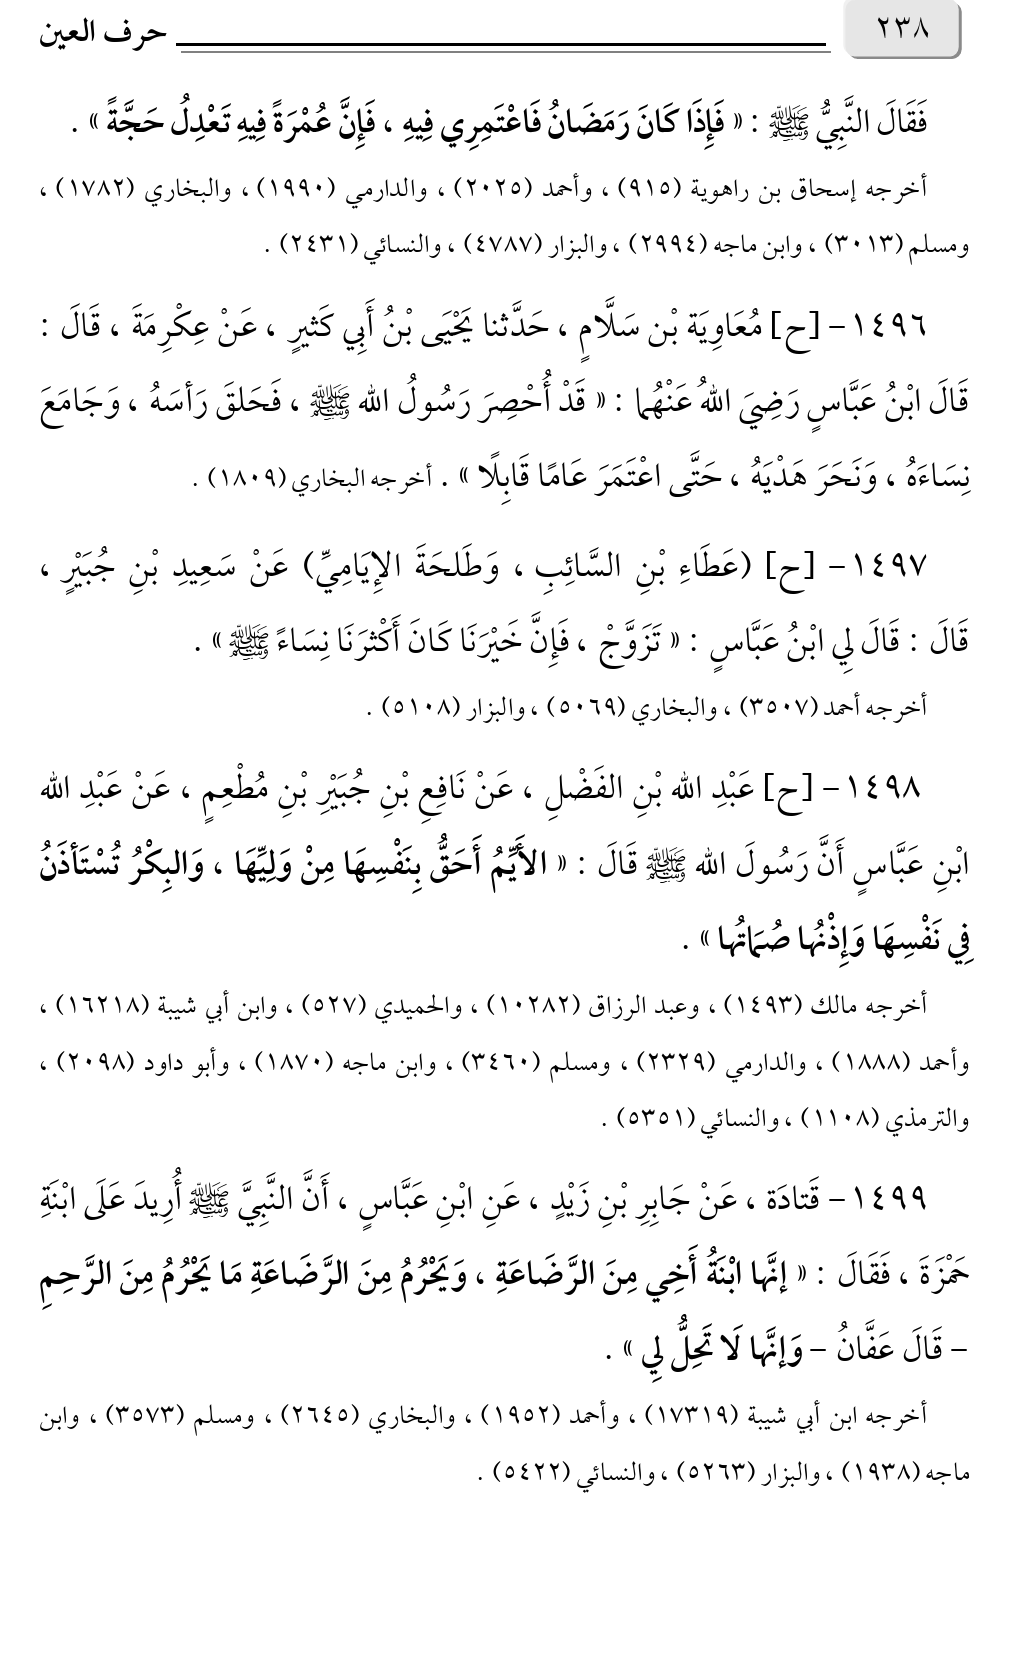 ٢٣٨
حرف العين
فَقَالَ النَّبِيُّ ﷺ : « فَإِذَا كَانَ رَمَضَانُ فَاعْتَمِرِي فِيهِ ، فَإِنَّ عُمْرَةً فِيهِ تَعْدِلُ حَجَّةً » .
أخرجه إسحاق بن راهوية (٩١٥) ، وأحمد (٢٠٢٥) ، والدارمي (١٩٩٠) ، والبخاري (١٧٨٢) ،
ومسلم (٣٠١٣) ، وابن ماجه (٢٩٩٤) ، والبزار (٤٧٨٧) ، والنسائي (٢٤٣١) .
١٤٩٦- [ح] مُعَاوِيَة بْن سَلَّامٍ ، حَدَّثنا يَحْيَى بْنُ أَبِي كَثيرٍ ، عَنْ عِكْرِمَةَ ، قَالَ :
قَالَ ابْنُ عَبَّاسٍ رَضِيَ اللهُ عَنْهُما : « قَدْ أُحْصِرَ رَسُولُ الله ﷺ ، فَحَلقَ رَأسَهُ ، وَجَامَعَ
نِسَاءَهُ ، وَنَحَرَ هَدْيَهُ ، حَتَّى اعْتَمَرَ عَامًا قَابِلًا » . أخرجه البخاري (١٨٠٩) .
١٤٩٧- [ح] (عَطَاءِ بْنِ السَّائِبِ ، وَطَلحَةَ الإِيَامِيِّ) عَنْ سَعِيدِ بْنِ جُبَيْرٍ ،
قَالَ : قَالَ لِي ابْنُ عَبَّاسٍ : « تَزَوَّجْ ، فَإِنَّ خَيْرَنَا كَانَ أَكْثرَنَا نِسَاءً ﷺ » .
أخرجه أحمد (٣٥٠٧) ، والبخاري (٥٠٦٩) ، والبزار (٥١٠٨) .
١٤٩٨- [ح] عَبْدِ الله بْنِ الفَضْلِ ، عَنْ نَافِعِ بْنِ جُبَيْرِ بْنِ مُطْعِمٍ ، عَنْ عَبْدِ الله
ابْنِ عَبَّاسٍ أَنَّ رَسُولَ الله ﷺ قَالَ : « الأَيِّمُ أَحَقُّ بِنَفْسِهَا مِنْ وَلِيِّهَا ، وَالبِكْرُ تُسْتَأذَنُ
فِي نَفْسِهَا وَإِذْنُها صُمَاتُها » .
أخرجه مالك (١٤٩٣) ، وعبد الرزاق (١٠٢٨٢) ، والحميدي (٥٢٧) ، وابن أبي شيبة (١٦٢١٨) ،
وأحمد (١٨٨٨) ، والدارمي (٢٣٢٩) ، ومسلم (٣٤٦٠) ، وابن ماجه (١٨٧٠) ، وأبو داود (٢٠٩٨) ،
والترمذي (١١٠٨) ، والنسائي (٥٣٥١) .
١٤٩٩- قَتادَة ، عَنْ جَابِرِ بْنِ زَيْدٍ ، عَنِ ابْنِ عَبَّاسٍ ، أَنَّ النَّبِيَّ ﷺ أُرِيدَ عَلَى ابْنَةِ
حَمْزَةَ ، فَقَالَ : « إنَّها ابْنَةُ أَخِي مِنَ الرَّضَاعَةِ ، وَيَحْرُمُ مِنَ الرَّضَاعَةِ مَا يَحْرُمُ مِنَ الرَّحِمِ
- قَالَ عَفَّانُ - وَإنَّها لَا تَحِلُّ لِي » .
أخرجه ابن أبي شيبة (١٧٣١٩) ، وأحمد (١٩٥٢) ، والبخاري (٢٦٤٥) ، ومسلم (٣٥٧٣) ، وابن
ماجه (١٩٣٨) ، والبزار (٥٢٦٣) ، والنسائي (٥٤٢٢) .